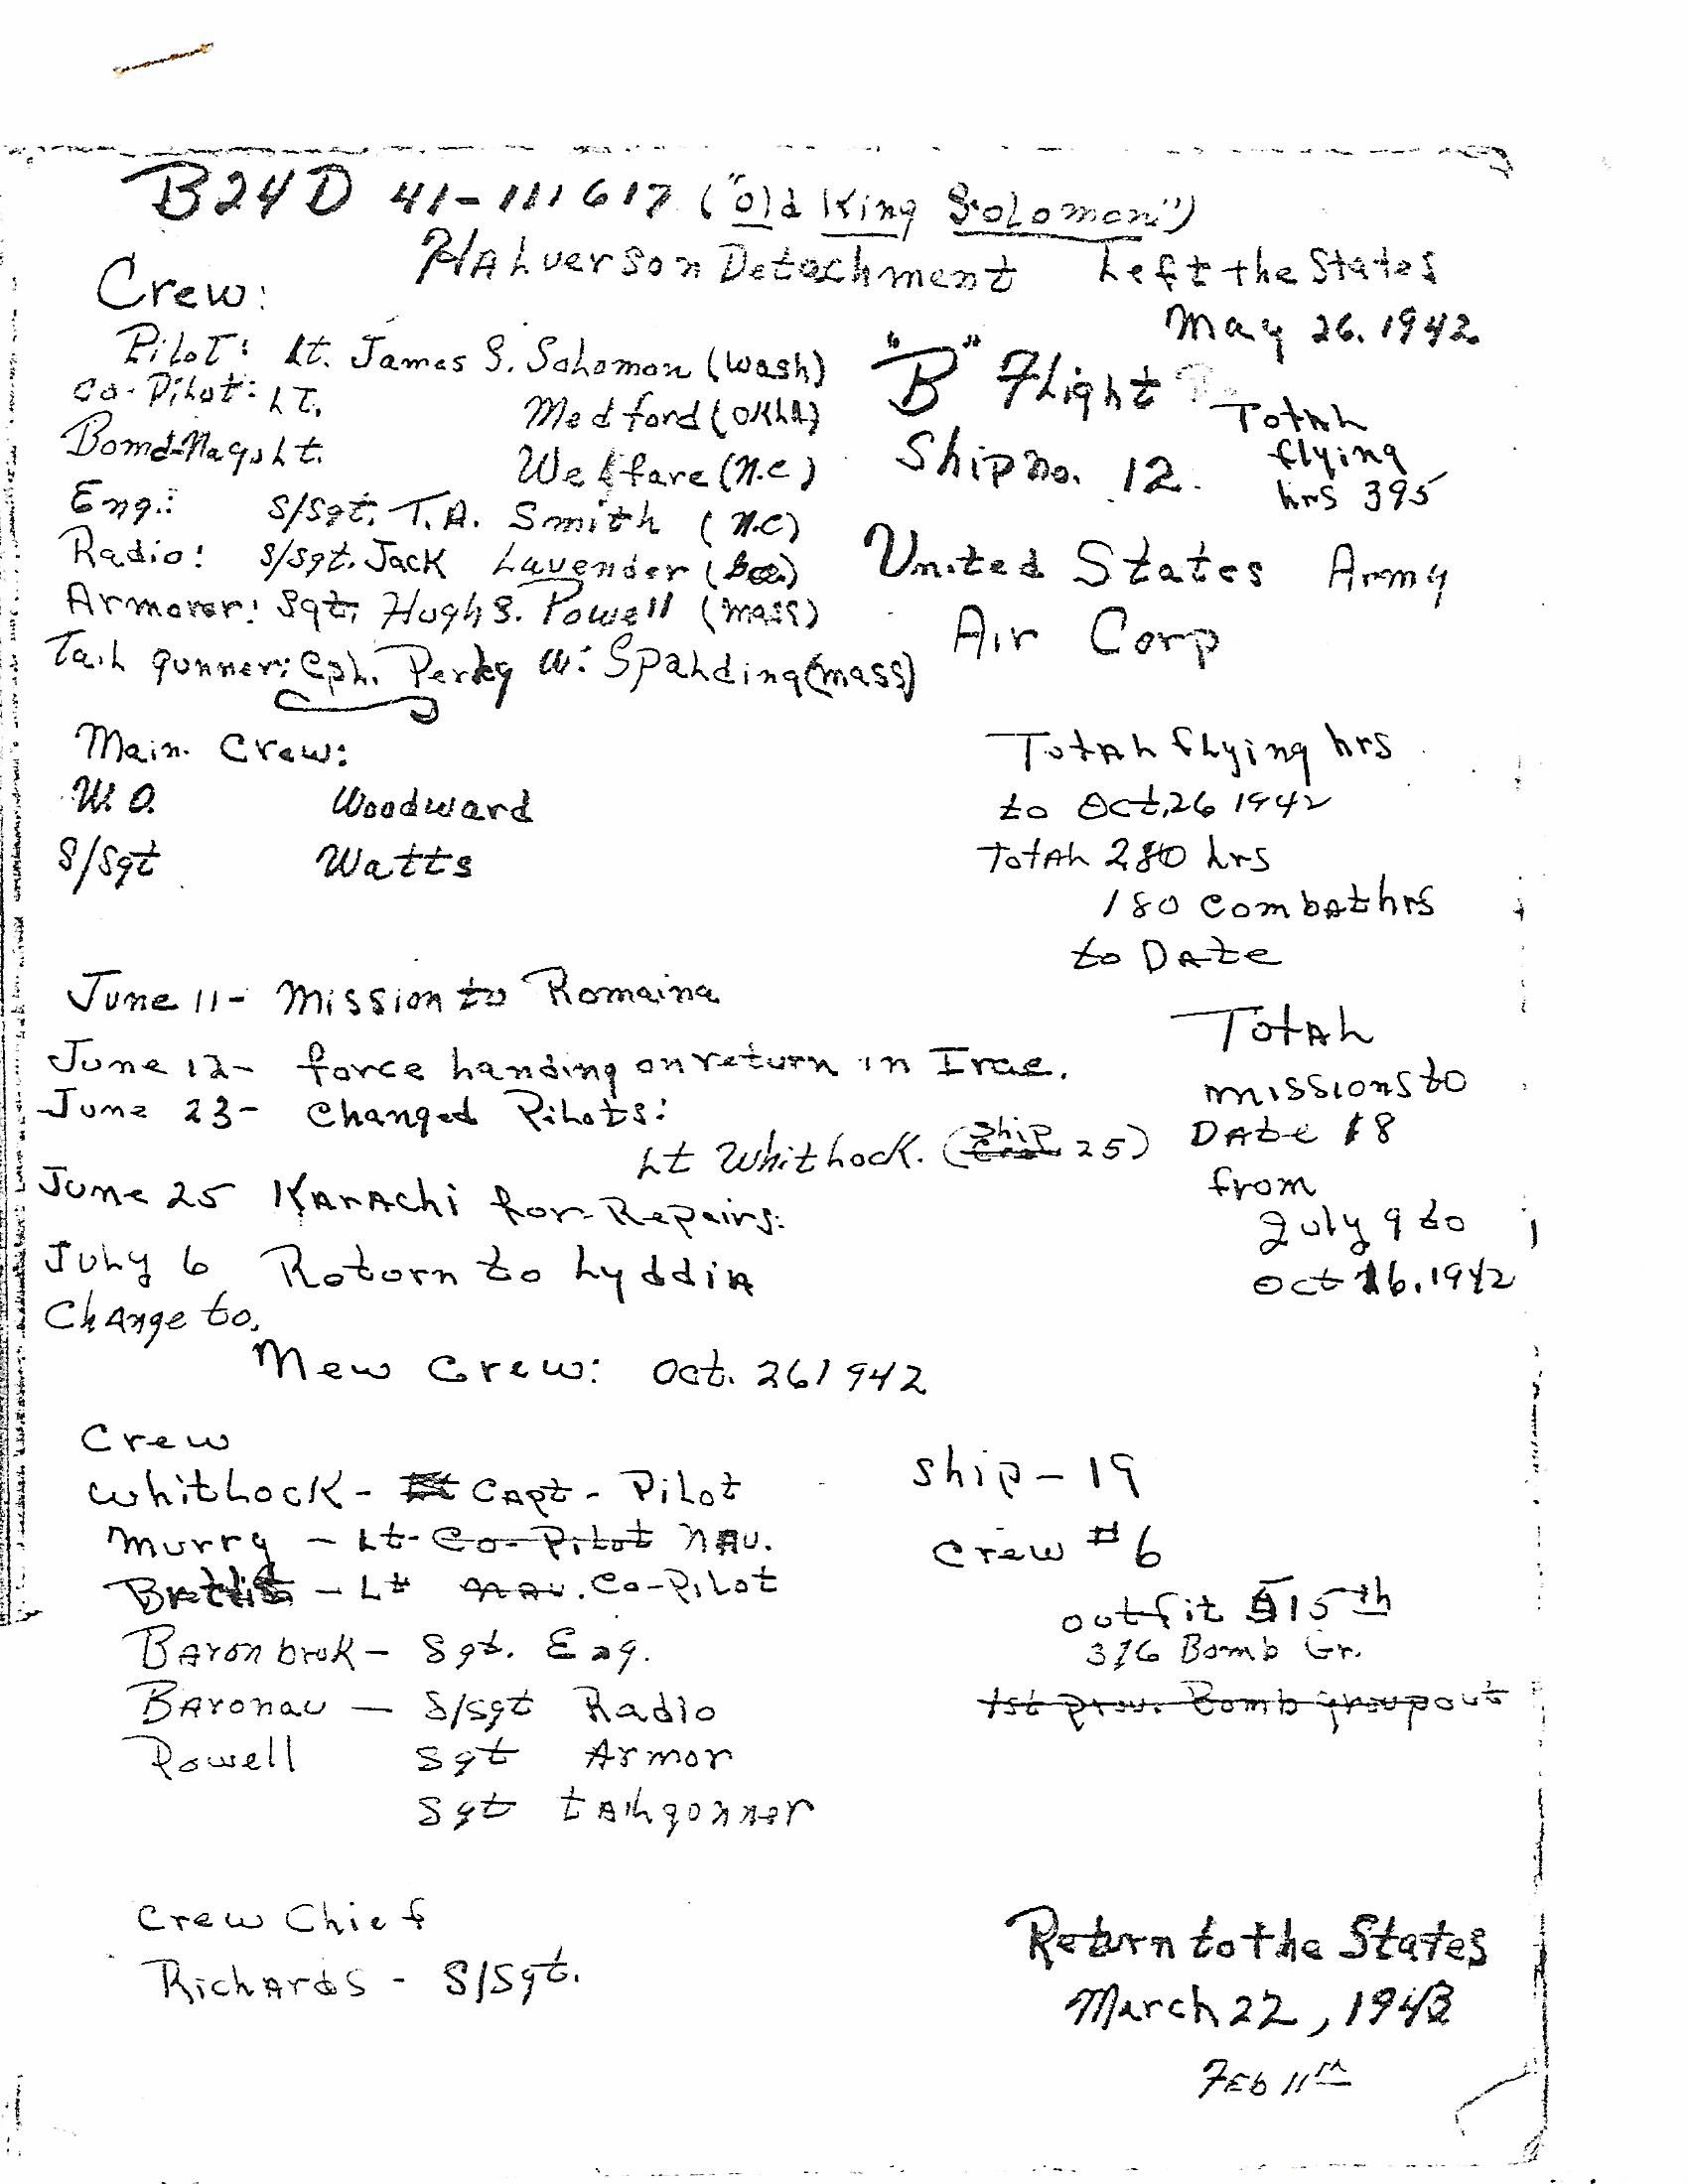 B24D 41-111617 ("Old King Solomon")
Halverson Detachment Left the States
May 26. 1942
Crew:
Pilot: Lt. James S. Solomon (Wash)
Co-Pilot: LT. Medford (Okla)
Bomd-Nag Lt. Welfare (N.C)
Eng.: S/Sgt. T.A. Smith (N.C)
Radio: S/Sgt. Jack Lavender
Armorer: Sgt. Hugh S. Powell (Mass)
Tail gunner: Cpl. Perky W. Spalding (Mass)
"B" Flight
Ship no. 12.
Total
flying
hrs 395
United States Army
Air Corp
Main. Crew:
W.O. Woodward
S/Sgt Watts
Total flying hrs
to Oct. 26 1942
Total 280 hrs
180 combat hrs
to Date
June 11- Mission to Romaina
June 12- force landing on return in Irae.
June 23- Changed Pilots:
Lt Whitlock. (Ship 25)
June 25 Karachi for Repairs:
July 6 Return to Lyddia
Change to.
Total
missions to
Date 18
from
July 9 to
Oct 26. 1942
New Crew: Oct. 26 1942
Crew
Whitlock - Capt - Pilot
Murry - Lt- Co-Pilot NAV.
- Lt NAV. Co-Pilot
Baronbrok - Sgt. Eng.
Baronau - S/Sgt Radio
Powell Sgt Armor
Sgt tailgonner
Ship - 19
Crew #6
outfit 515th
376 Bomb Gr.
1st prov. Bomb group out
Crew Chief
Richards - S/Sgt.
Return to the States
March 22, 1943
Feb 11th